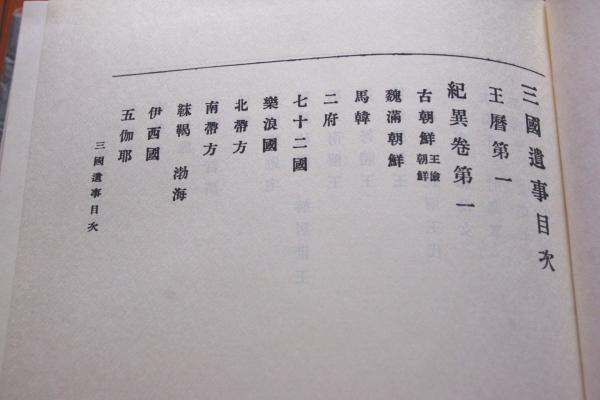 三國遺事目次
王曆第一
紀異卷第一
古朝鮮 王儉朝鮮
魏滿朝鮮
馬韓
二府
七十二國
樂浪國
北帶方
南帶方
靺鞨 渤海
伊西國
五伽耶
三國遺事目次